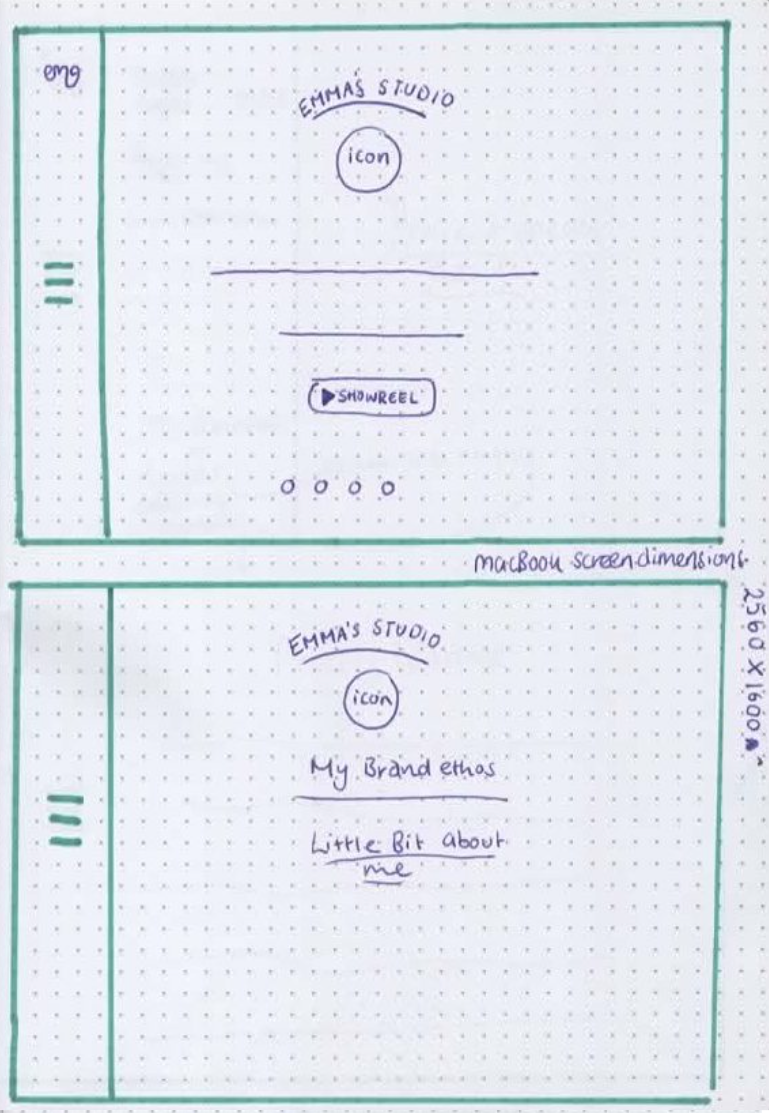 emg
EMMA'S STUDIO
icon
SHOWREEL
macBook screen dimensions
2560 X 1600
EMMA'S STUDIO
icon
My Brand ethos
Little Bit about
me